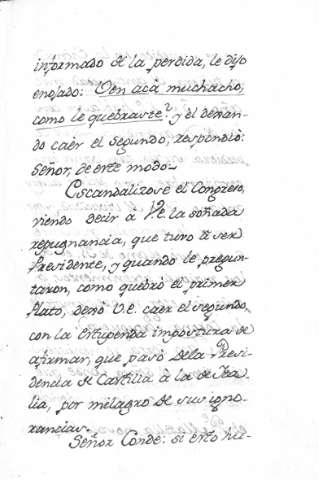 informado de la perdida, le dijo
enojado: Ven acá muchacho,
como le quebraste? y el deman-
do caèr el segundo, respondiò:
Señor, de este modo.
Escandalizose el Congreso,
viendo decir à V.E. la soñada
repugnancia, que tuvo de ser
Presidente, y quando le pregun-
taron, como quebrò el primer
Plato, dexò V.E. caer el segundo,
con la estupenda impostura de
afirmar, que pasò dela Presi-
dencia de Castilla à la de Ita-
lia, por milagro de sus igno-
rancias.
Señor Conde: si esto hu-